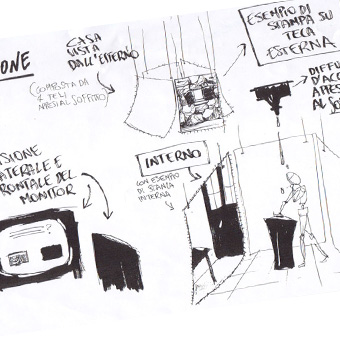 ONE
CASA
VISTA
DALL'ESTERNO
(COMPOSTA DA
4 TELI
APPESI AL SOFFITTO)
ESEMPIO DI
STAMPA SU
TECA
ESTERNA
DIFFU
D'ACQ
APPES
AL SO
ISIONE
LATERALE E
FRONTALE DEL
MONITOR
INTERNO
CON ESEMPIO
DI STAMPA
INTERNA
?